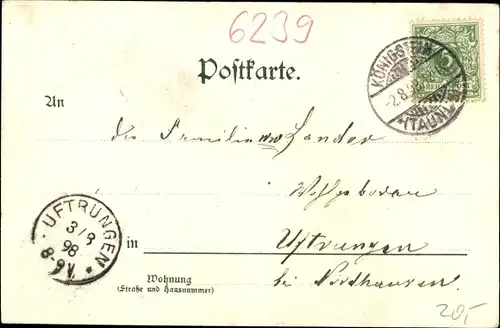 6239
Postkarte.
KÖNIGSTEIN
2.8.98
(TAUNUS)
An
die Familie Sander
Wohlgeboren
UFTRUNGEN
3/8
98
8-9V.
in Uftrungen
Wohnung
(Straße und Hausnummer)
bei Nordhausen
20,-